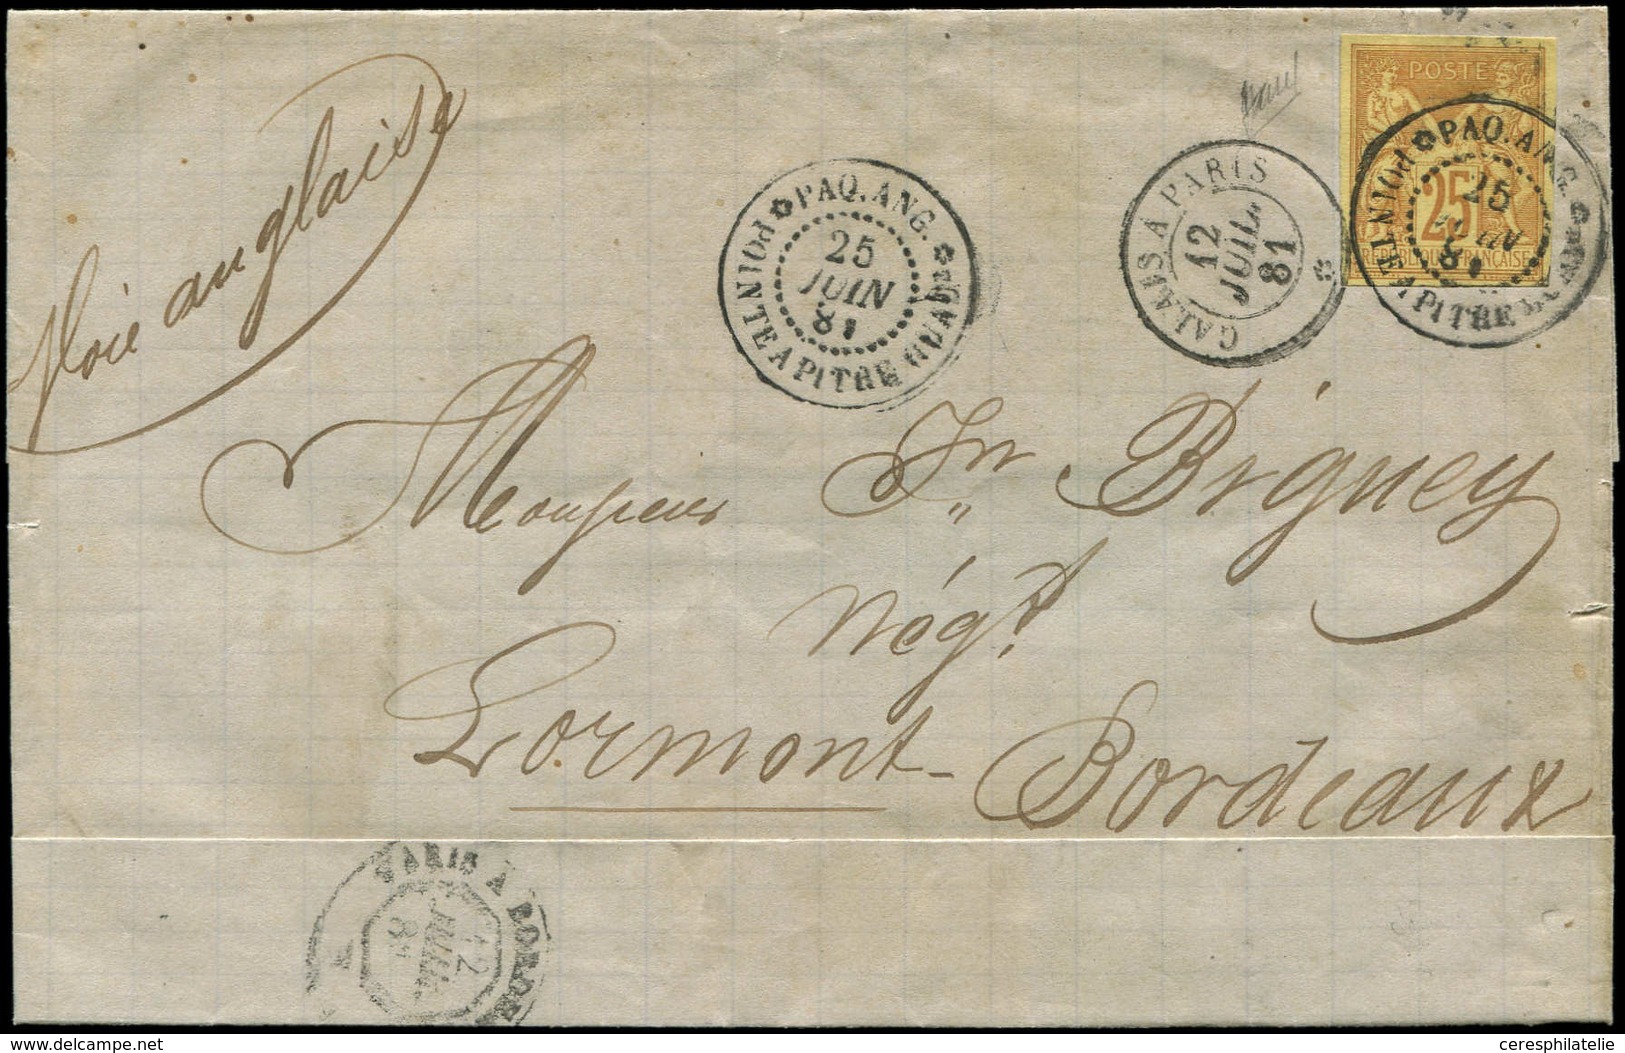 Voie anglaise
PAQ. ANG.
25
JUIN
81
POINTE A PITRE GUAD
CALAIS A PARIS
12
JUIL.
81
POSTE
25
REPUBLIQUE FRANÇAISE
PAQ. ANG.
25
JUIN
81
POINTE A PITRE GUAD
Monsieur Jn Biguey
Négt
Lormont - Bordeaux
PARIS A BORDE
12
JUIL
81
delcampe.net
ceresphilatelie